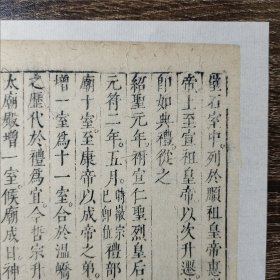 聖石室中列於顯祖皇帝惠
帝上至宣祖皇帝以次升遷
即如典禮從之
紹聖元年祔宣仁聖烈皇后
元符三年五月時徽宗已即位禮部
廟十室至康帝以成帝之弟
增一室爲十一室合於溫嶠
之歷代於禮爲宜今哲宗升
太廟殿增一室候廟成日神